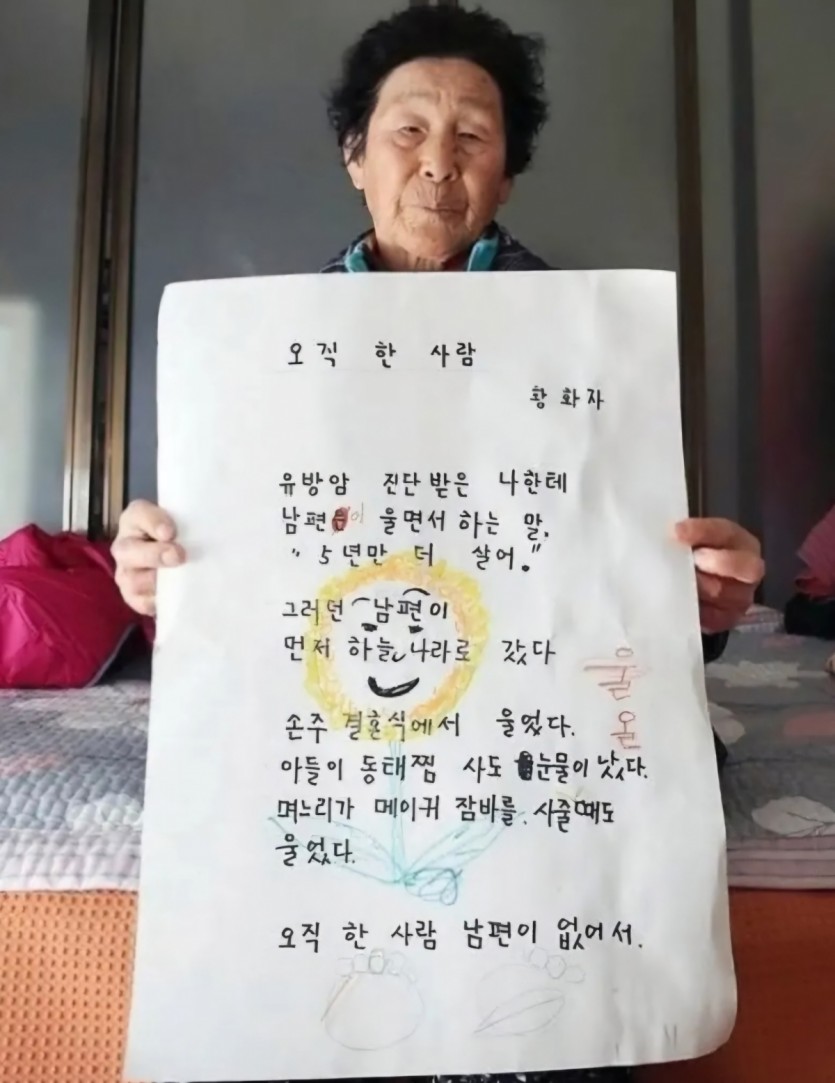 오직 한 사람
황화자
유방암 진단 받은 나한테
남편이 울면서 하는 말,
"5년만 더 살어."
그러던 남편이
먼저 하늘나라로 갔다
손주 결혼식에서 울었다.
아들이 동태찜 사도 눈물이 낫다.
며느리가 메이커 잠바를 사줄때도
울었다.
오직 한 사람 남편이 없어서.
울
울